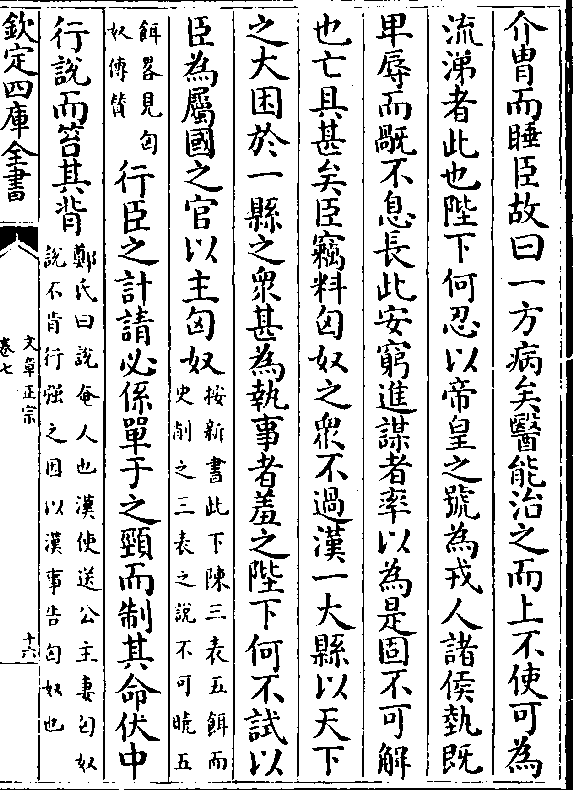 介胄而睡臣故曰一方病矣醫能治之而上不使可為
流涕者此也陛下何忍以帝皇之號為戎人諸侯埶既
卑辱而𤨏不息長此安窮進謀者率以為是固不可解
也亡具甚矣臣竊料匈奴之衆不過漢一大縣以天下
之大困於一縣之衆甚為執事者羞之陛下何不試以
臣為屬國之官以主匈奴按新書此下陳三表五餌而
史削之三表之說不可曉五
餌畧見匈
奴傳贊行臣之計請必係單于之頸而制其命伏中
行說而笞其背鄭氏曰說奄人也漢使送公主妻匈奴
說不肯行强之因以漢事告匈奴也
欽定四庫全書
文章正宗
卷七
十六